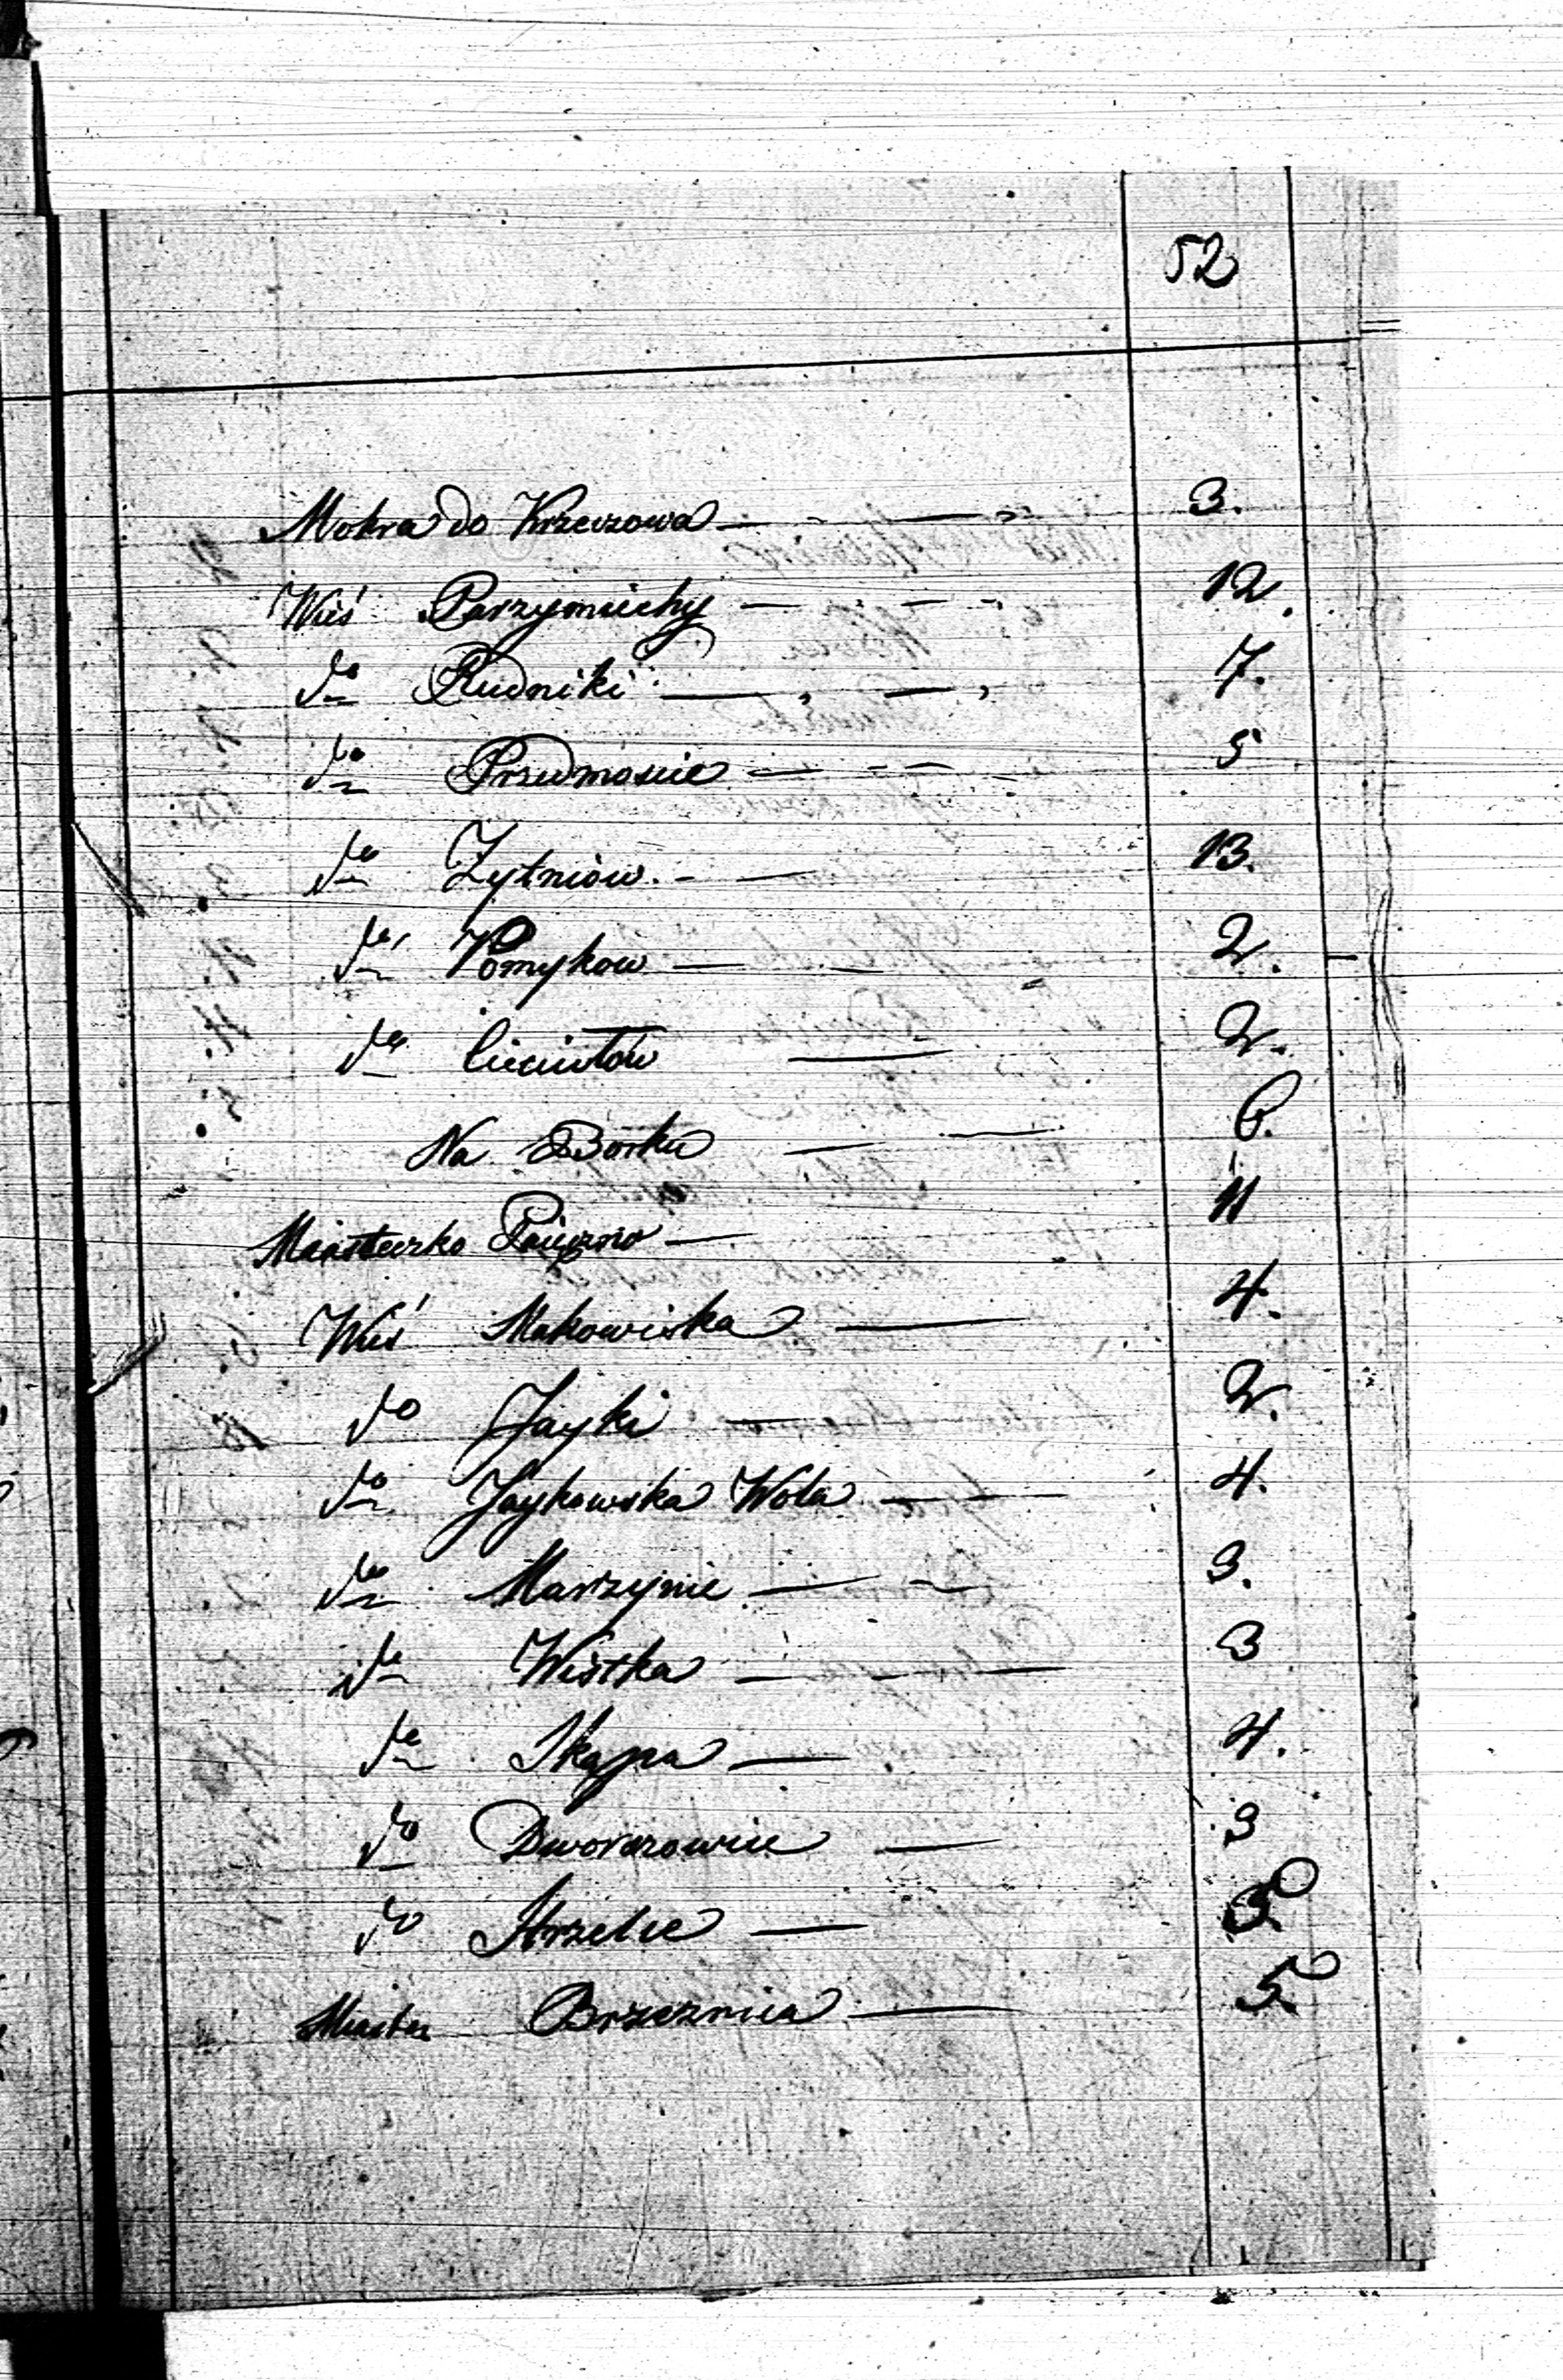 52
Mokra do Krzeczowa — — 3.
Wieś Parzymiechy — — 12.
do Rudniki — — 7.
do Przedmoście — — 5
do Zytniów — — 13.
do Pomykow — — 2.
do Cieciułów — 2.
Na Borku — — 6.
Miasteczko Paięczno — 11
Wieś Makowiska — 4.
do Jayki — 2.
do Jaykowska Wola — — 4.
do Marzynie — — 3.
do Wistka — — 3
do Skąpa — 4.
do Dworszowice — 3
do Strzelce —
Miasto Brzeznica — 5.